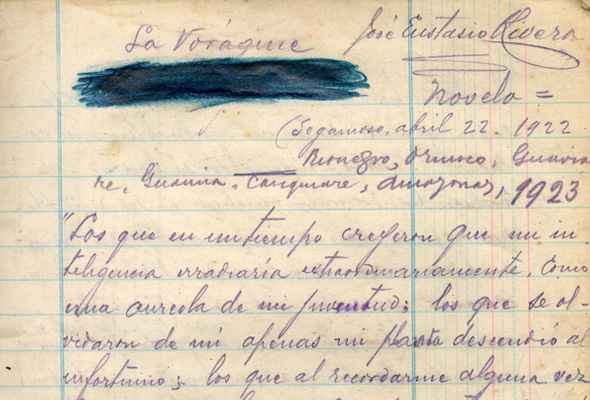 La Vorágine
José Eustasio Rivera
Novela =
(Sogamoso, abril 22 - 1922
Rionegro, Orinoco, Guavia
re, Guainía, Casiquiare, Amazonas, 1923
"Los que en un tiempo creyeron que mi in
teligencia irradiaría extraordinariamente, como
una aureola de mi juventud; los que se ol-
vidaron de mí apenas mi planta descendió al
infortunio; los que al recordarme alguna vez